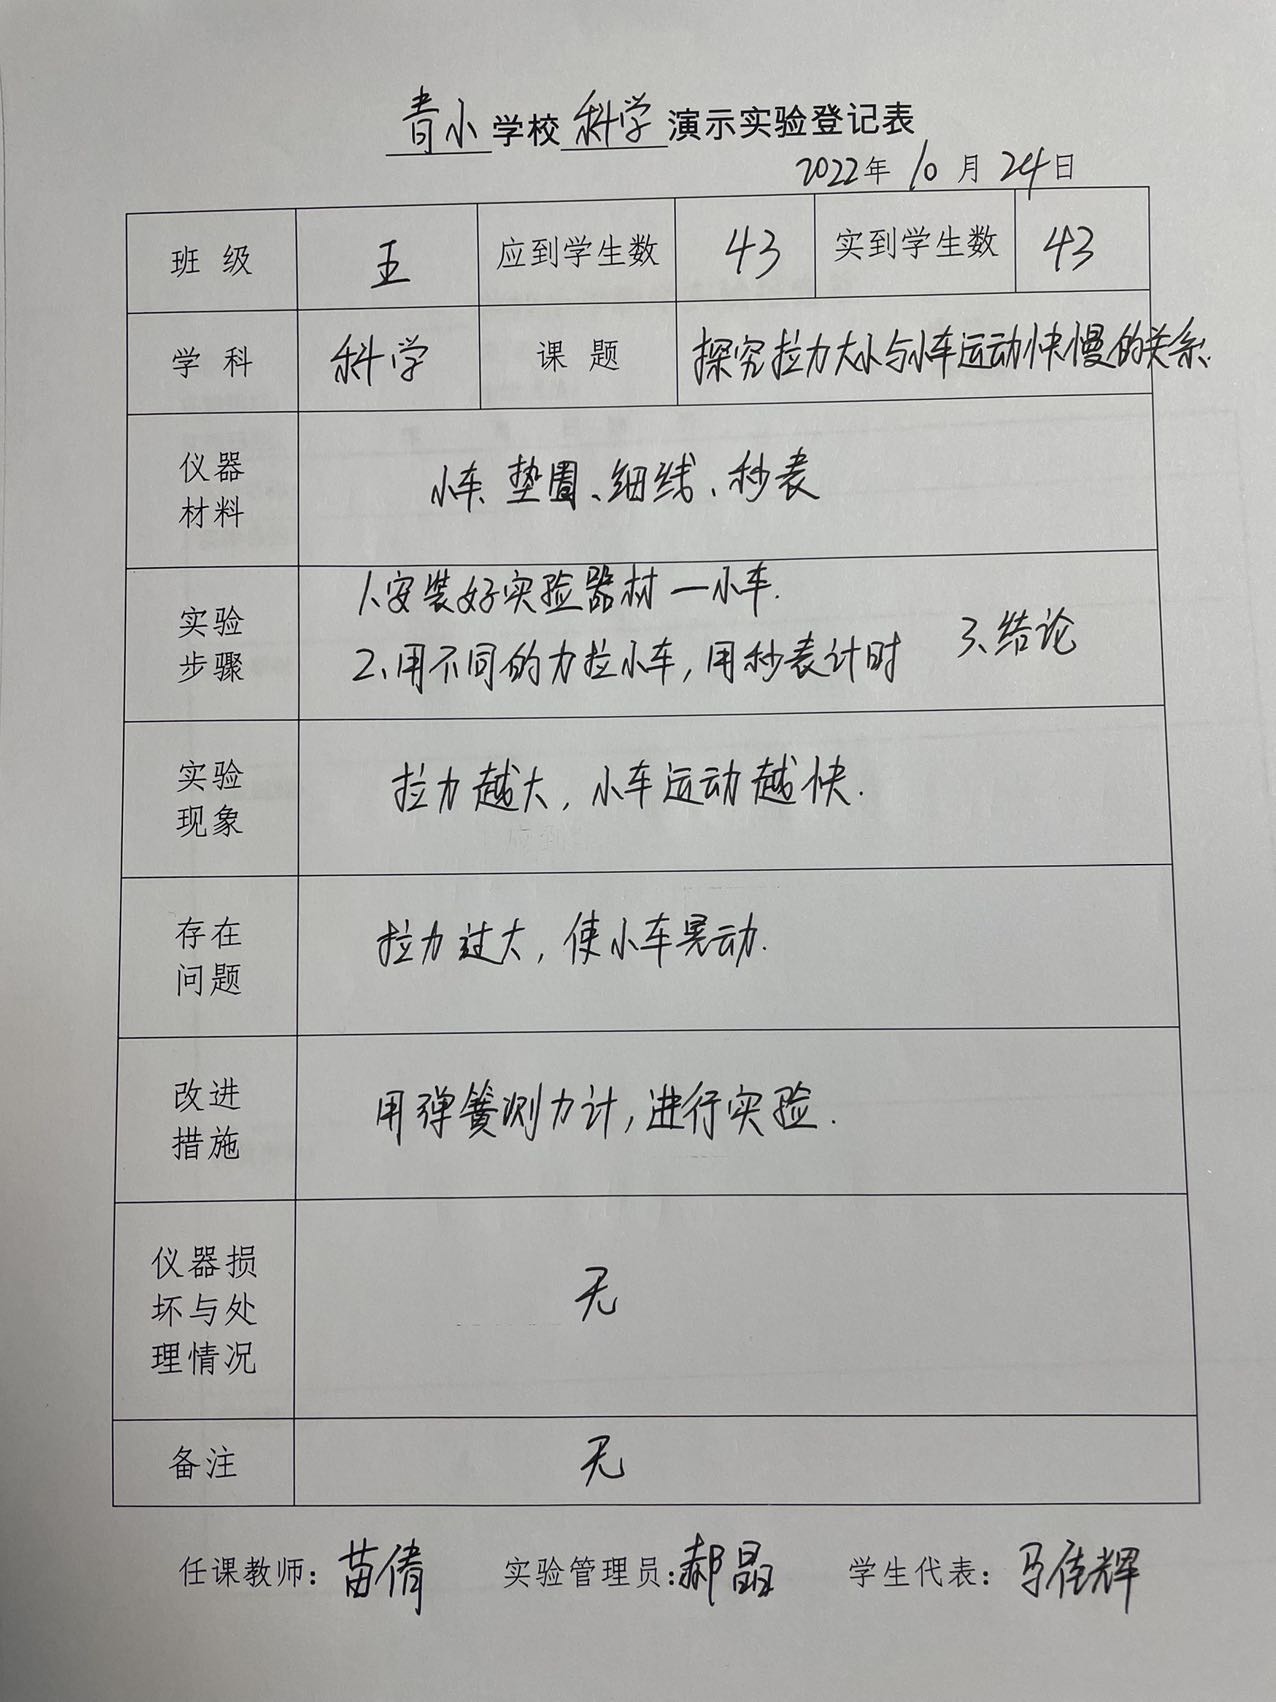 青小学校科学演示实验登记表
2022年10月24日
班级 五 应到学生数 43 实到学生数 43
学科 科学 课题 探究拉力大小与小车运动快慢的关系.
仪器材料 小车、垫圈、细线、秒表
实验步骤 1.安装好实验器材一小车.
2、用不同的力拉小车,用秒表计时 3、结论
实验现象 拉力越大,小车运动越快.
存在问题 拉力过大,使小车晃动.
改进措施 用弹簧测力计,进行实验.
仪器损坏与处理情况 无
备注 无
任课教师:苗倩 实验管理员:郝晶 学生代表:马佳辉